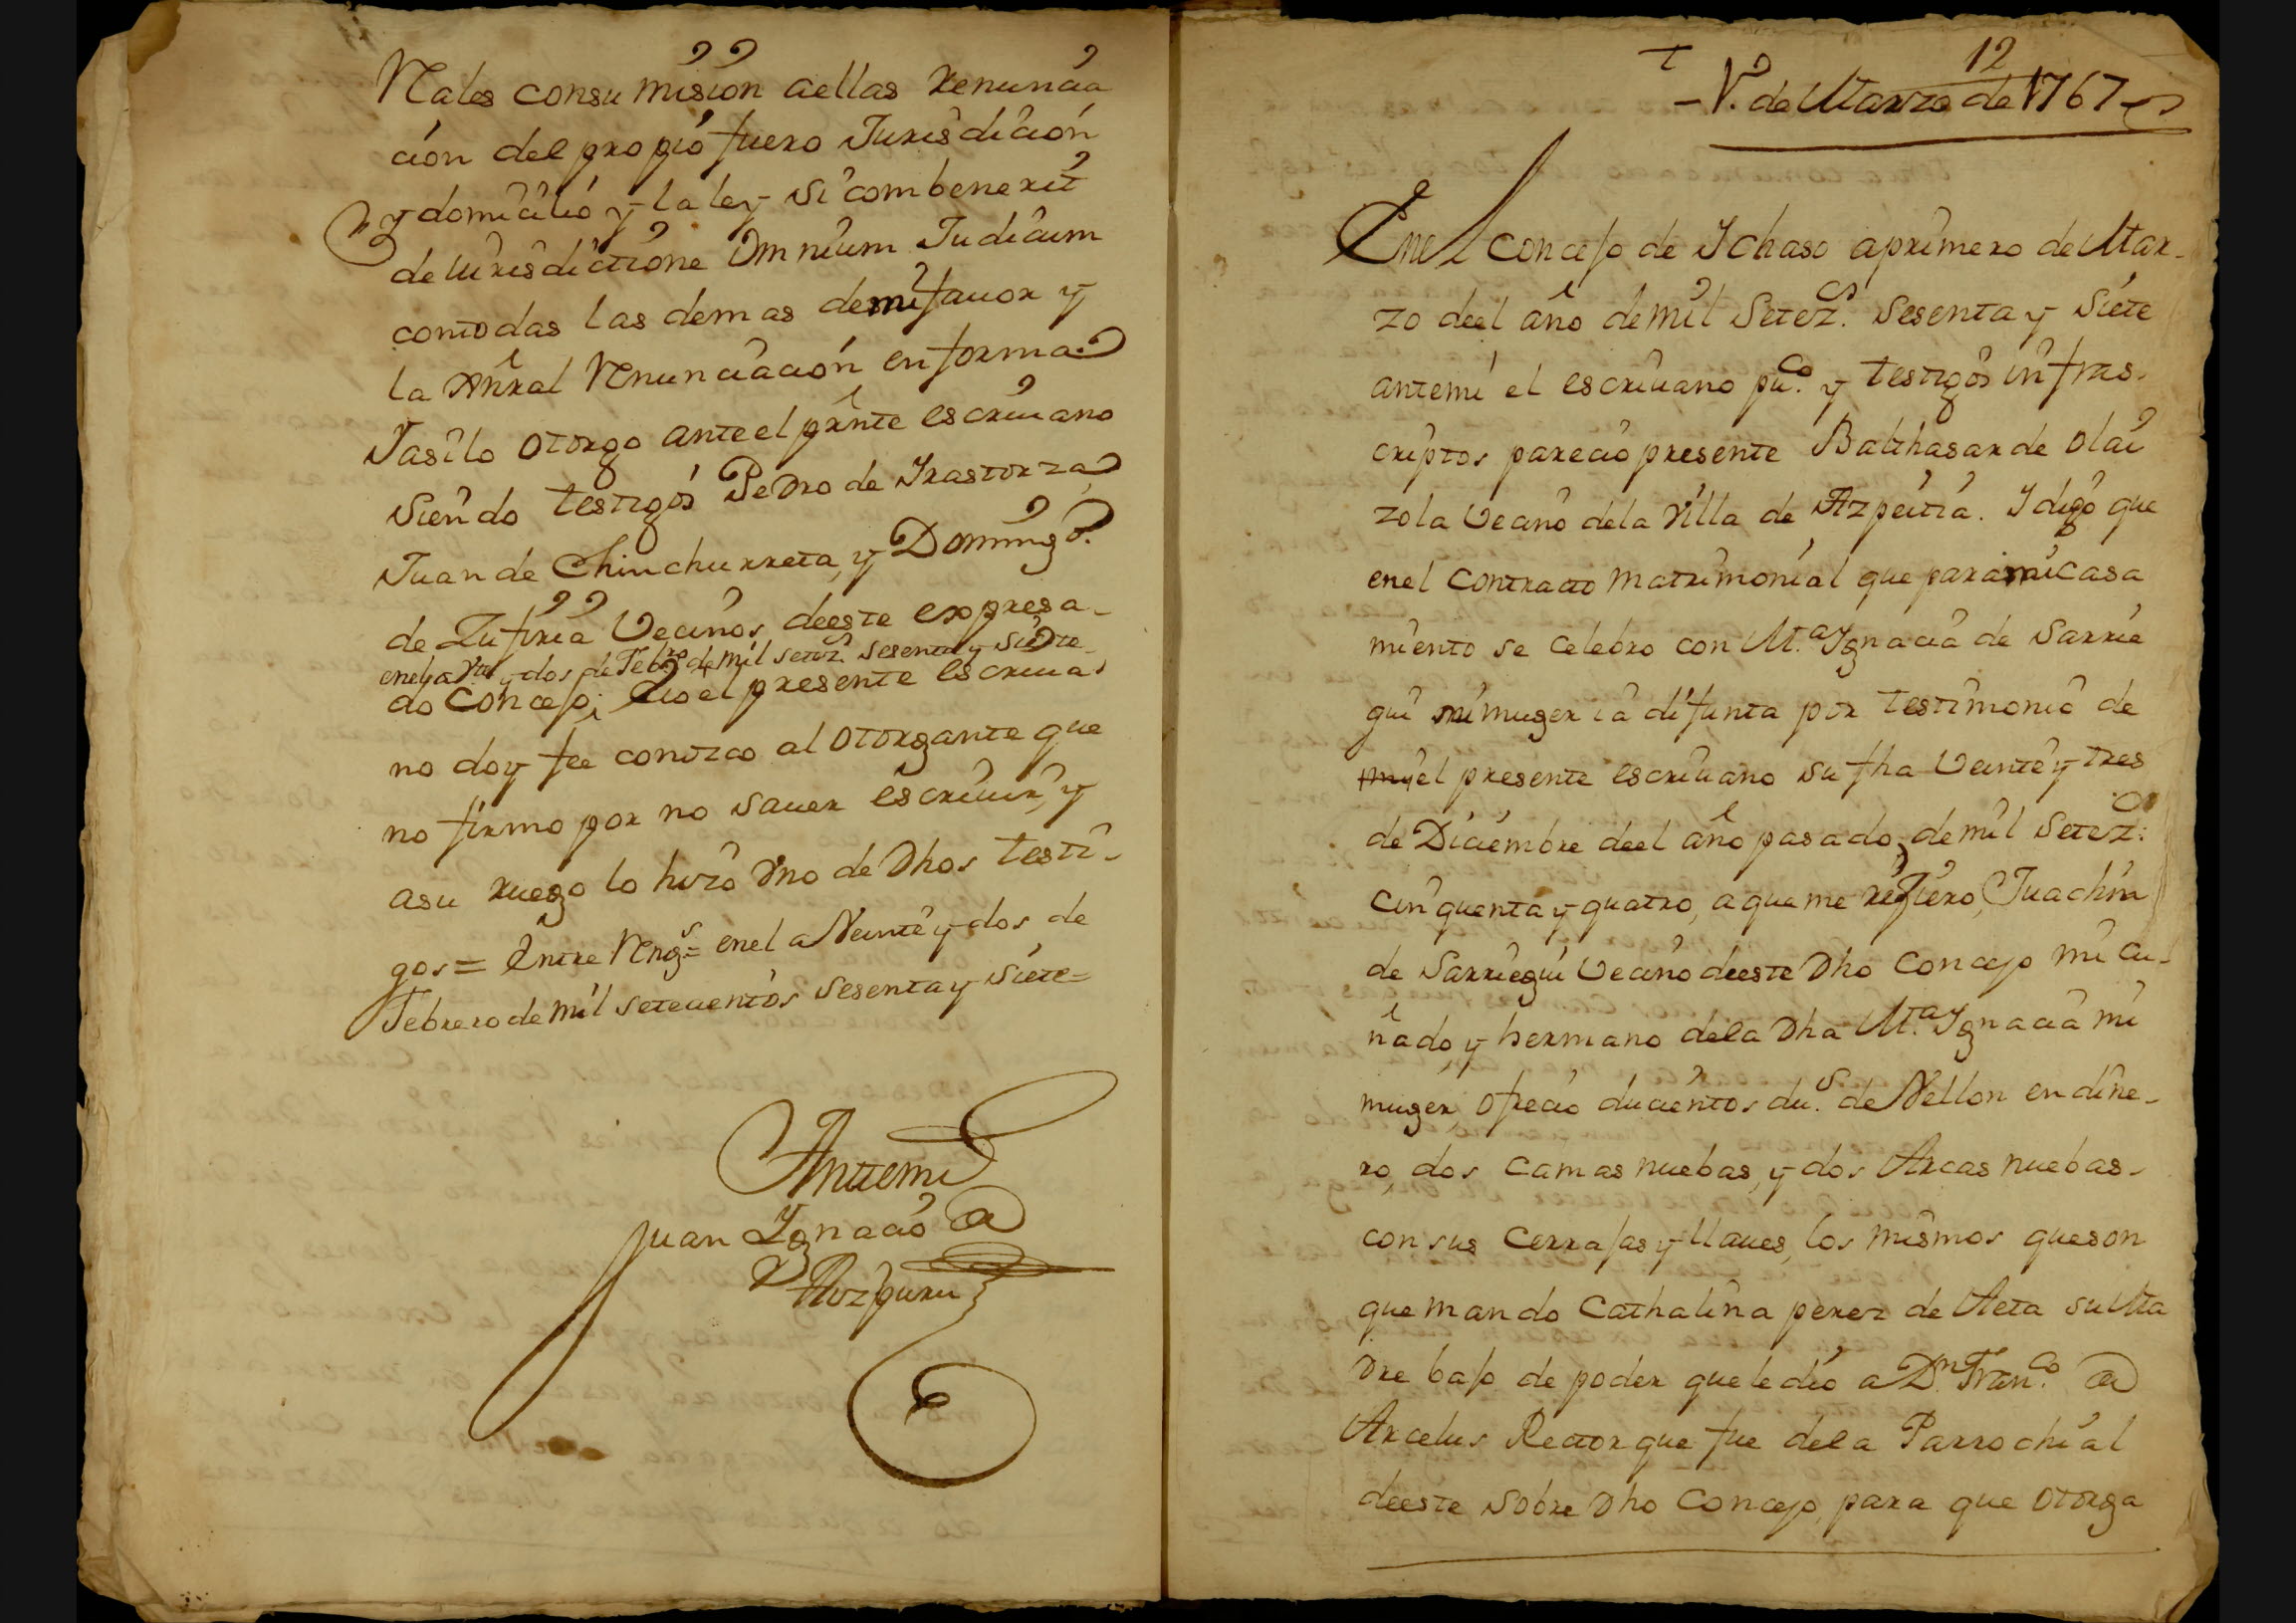 Nales consu mision aellas Renuncia
cion del propio fuero Jurisdicion
y domicilio y la ley si combenerit
de iurisdictione Omnium Judicum
contodas las demas demi fauor y
la Gñral Renunciacion en forma.
Y asi lo otorgo ante el prñte escriuano
siendo testigos Pedro de Yrastorza,
Juan de Chinchurreta, y Domingo
de Zufiria Vecinos deeste expresa-
enel a Vte y dos de Febro de mil setez.s sesenta y siete
do Concejo; Yo el presente escriua
no doy fee conozco al otorgante que
no firmo por no sauer escriuir, y
asu ruego lo hizo Vno de Dhos testi-
gos = Entre Rengs = enel a Veinte y dos de
Febrero de mil setecientos sesenta y siete =
Antemi
Juan Ygnacio de
Aozpuru
12
V.º de Marzo de 1767
Enel concejo de Ichaso a primero de Mar-
zo deel año de mil Setez.os sesenta y siete
antemi el escriuano pu.co y testigos infras-
criptos parecio presente Balthasar de Olai
zola Vecino dela Villa de Azpeitia. Y digo que
enel contracto matrimonial que para mi casa
miento se celebro con M.a Ygnacia de Sarrie
gui mi muger ia difunta por testimonio de
el presente escriuano su fha Veinte y tres
de Diciembre deel año pasado, de mil Setez.os
cinquenta y quatro, a que me refiero, Juachin
de Sarriegui Vecino deeste Dho Concejo mi cu-
ñado, y hermano dela Dha M.a Ygnacia mi
muger, ofrecio ducientos du.s de Vellon en dine-
ro, dos camas nuebas, y dos Arcas nuebas
con sus cerrajas y llaues, los mismos que son
que mando Cathalina perez de Aeta su Ma
Dre bajo de poder que le dio a D.n Fran.co de
Arcelus Rector que fue dela Parrochial
deeste sobre Dho Concejo, para que otorga